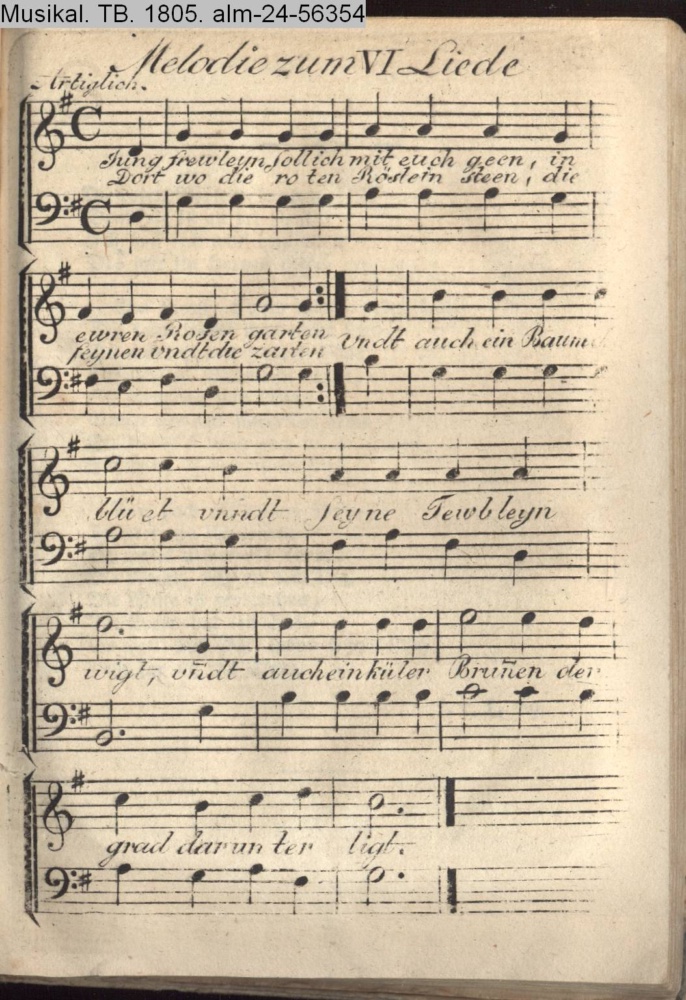 Musikal. TB. 1805. alm-24-56354
Melodie zum VI Liede
Artiglich.
Jung frewleyn sollich mit euch geen, in
Dort wo die ro ten Röslein steen, die
ewren Rosen garten vndt auch ein Baum
feynen vndt die zarten
blü et vnndt seyne Tewbleyn
wigt, vn̄dt auch ein küler Brun̄en der
grad darun ter ligt.